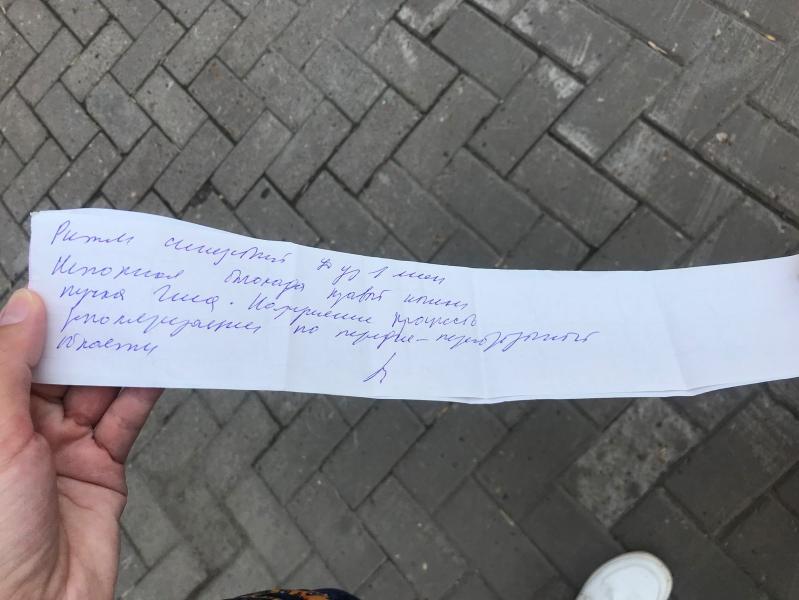 Ритм синусовый ↓ уз 1 мин
Неполная блокада правой ножки
пучка Гиса. Нарушение процессов
реполяризации по передне-перегородочной
области